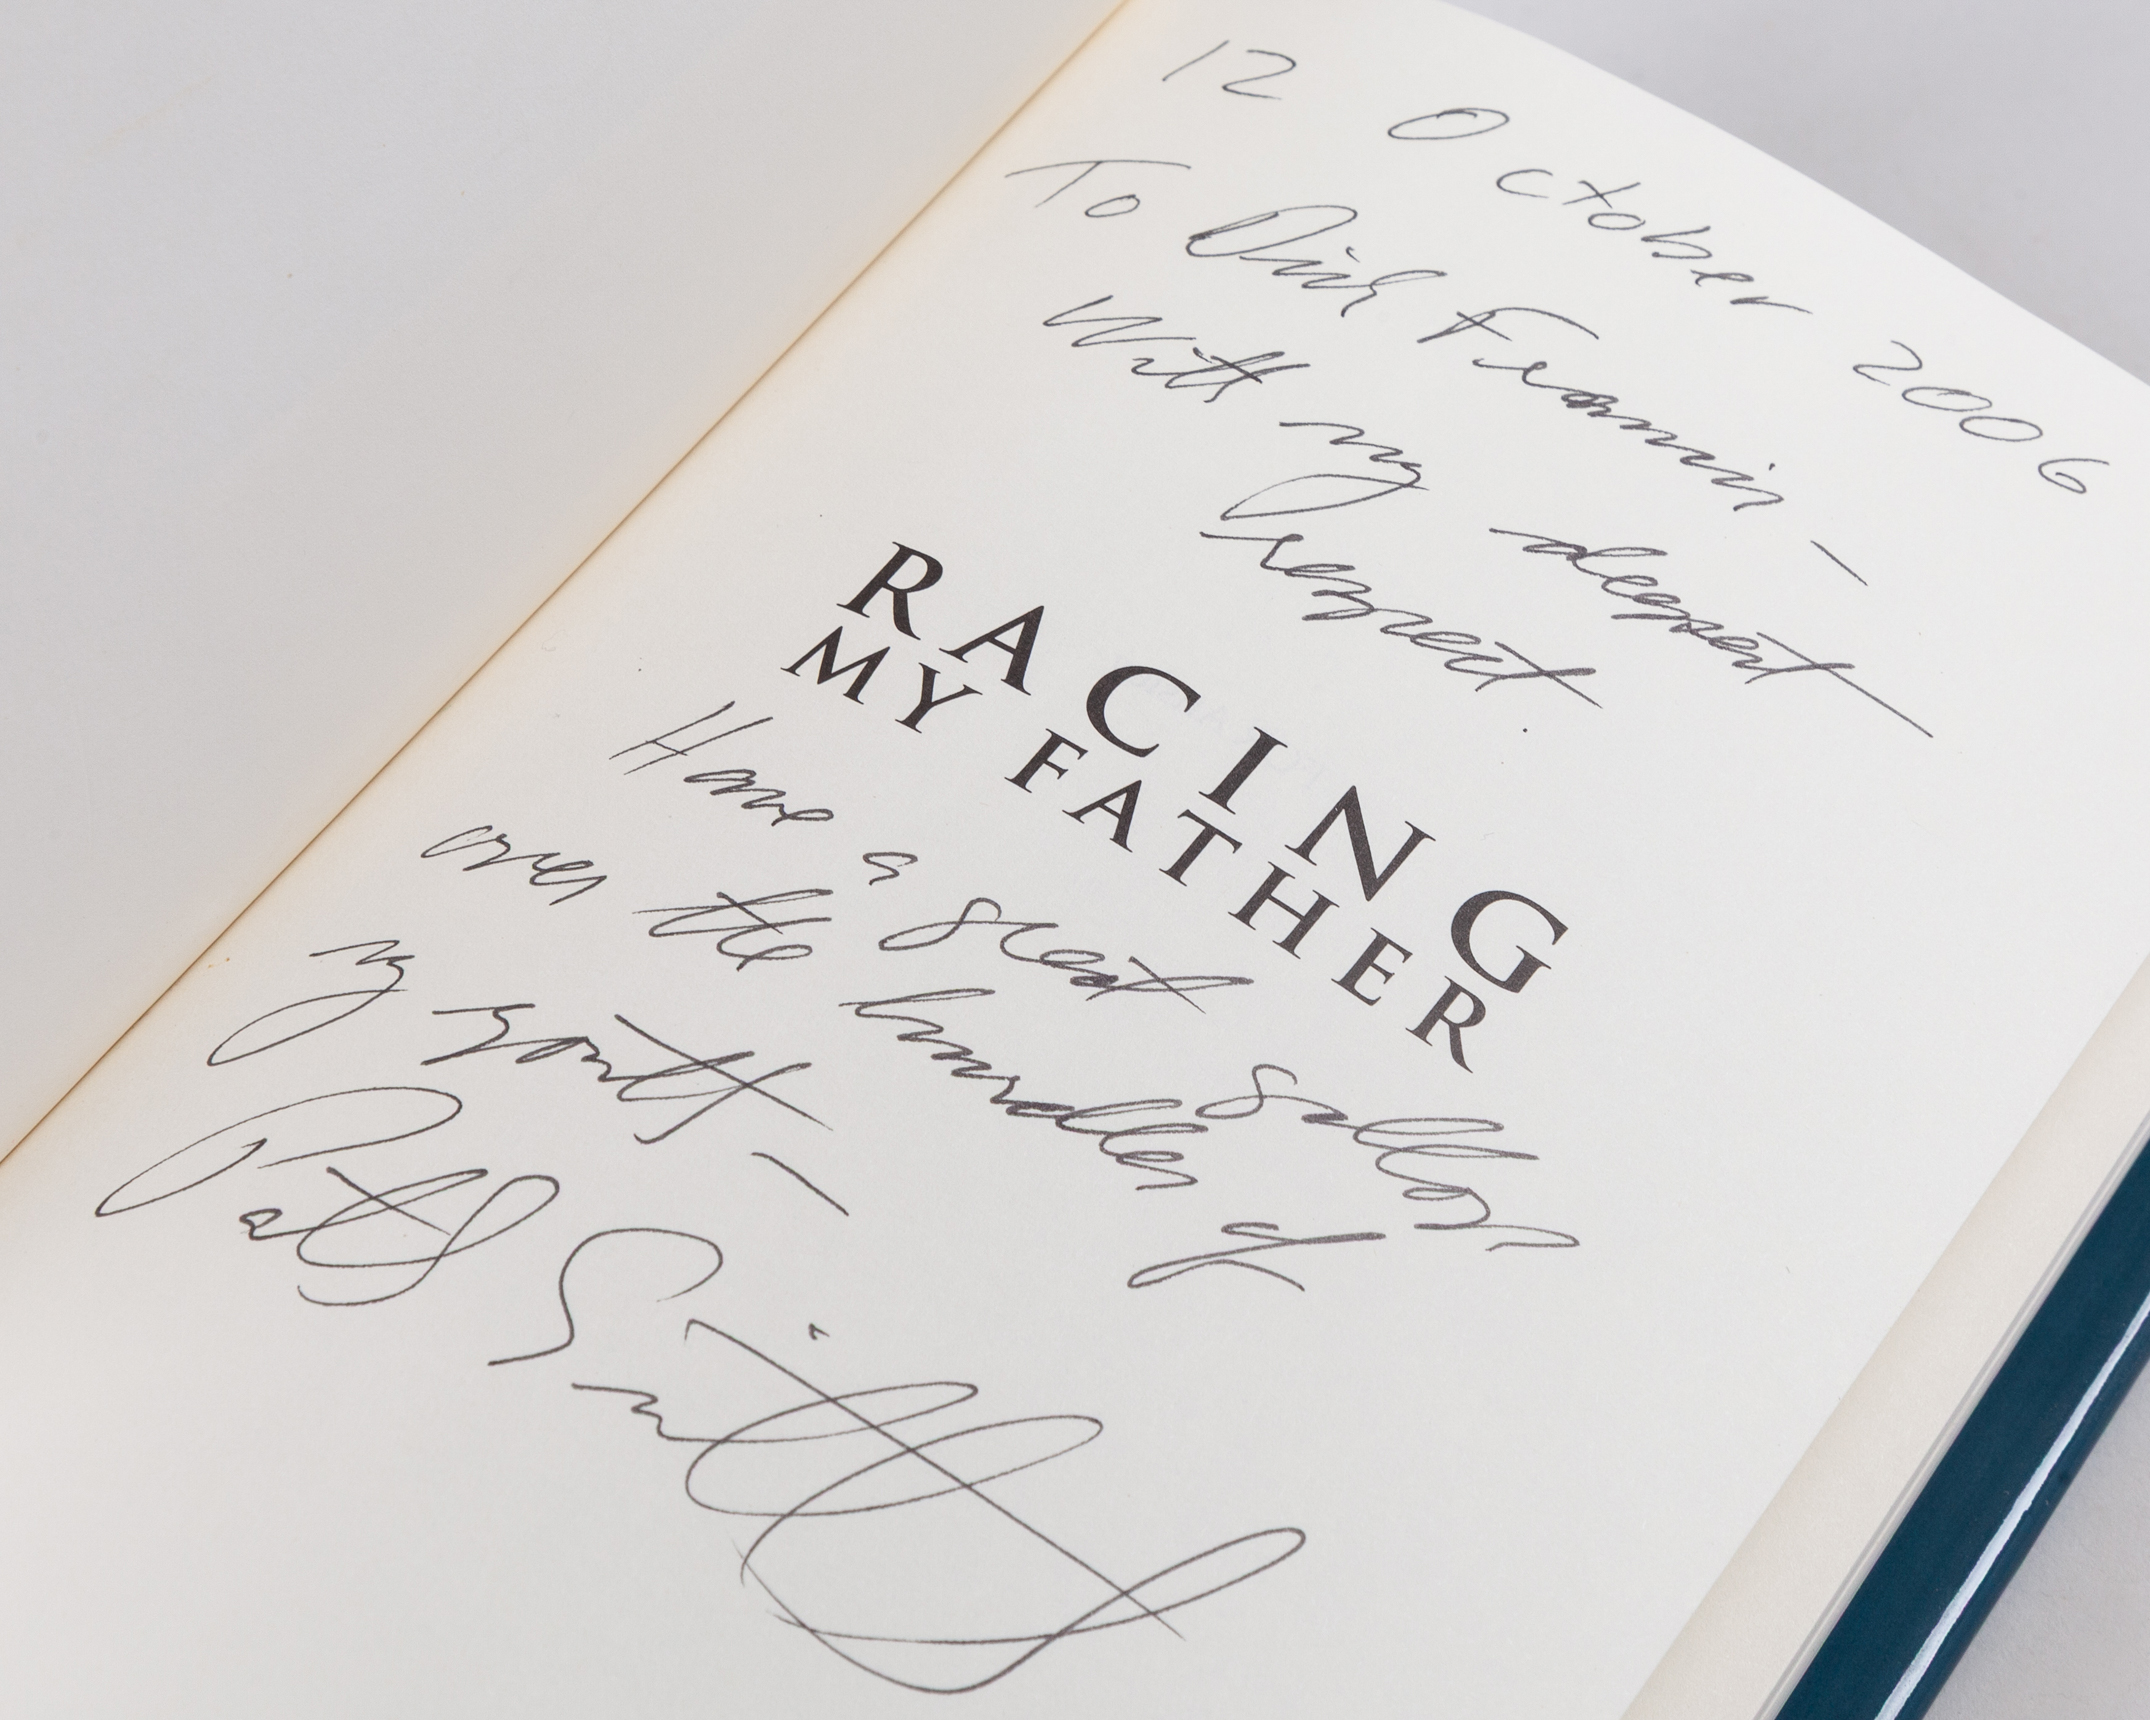 12 October 2006
To Dick Francis –
With my deepest
respect.
RACING
MY FATHER
Have a great gallop
over the hurdles of
my youth –
Patrick Smithwick